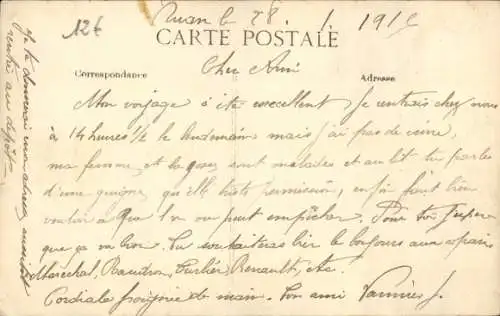 Rouen le 28. 1 191
12€
CARTE POSTALE
Correspondance
Adresse
Cher Ami
Mon voyage à été excellent je rentrais chez nous
à 14 heures 1/2 le lendemain mais j'ai pas de veine,
ma femme et la gosse sont malades et au lit tu parles
d'une guigne, qu'elle triste permission, enfin faut bien
vouloir à que l'on ne peut empêcher. Pour toi j'espère
que ça va bon. Tu souhaiteras bien le bonjour aux copains
Maréchal, Baudron, Renault, etc.
Cordiale poignée de main. Ton ami
Je te donnerai mon adresse aussitôt
rentré au dépôt.